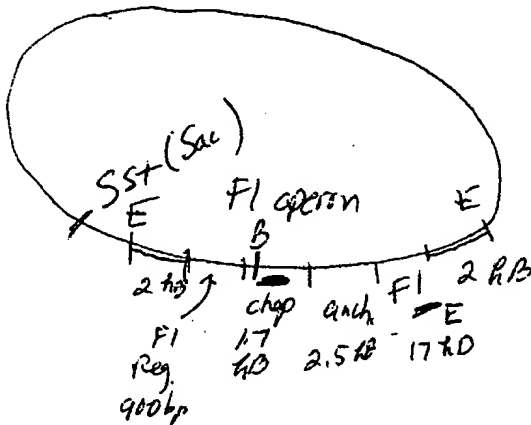 Sst (Sac)
E
F1 operon
B
E
2 kB
F1
Reg.
900 bp
chap
1.7
kB
anch
2.5 kB
F1
E
17 kD
2 kB